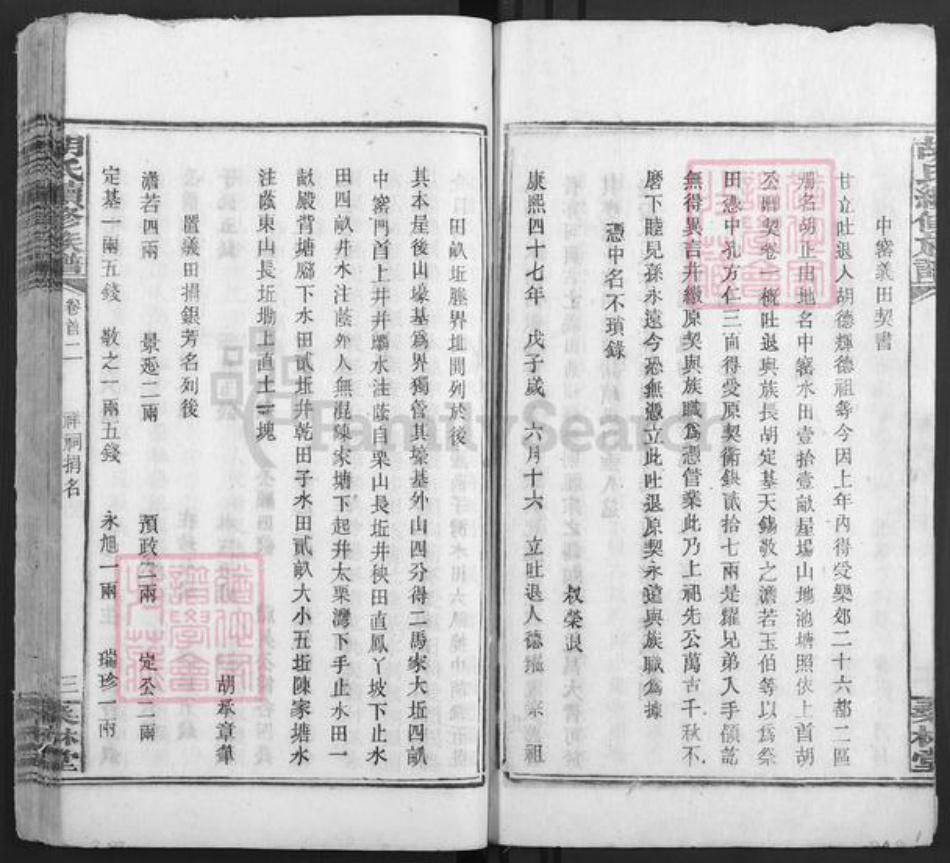 中窰義田契書
甘立吐退人胡德輝德祖等今因上年內得受樂郊二十六都二區
冊名胡正由地名中窰水田壹拾壹畝屋場山地池塘照依上首胡
公聯契卷一槪吐退與族長胡定基天錫敬之澹若玉伯等以爲祭
田憑中孔方仁三面得受原契銜銀貳拾七兩是耀兄弟入手領訖
無得異言幷繳原契與族職爲憑管業此乃上祀先公萬古千秋不
磨下睦兒孫永遠今恐無憑立此吐退原契永遠與族職爲據
憑中名不瑣錄 叔榮滾
康熙四十七年 戊子歲 六月十六 立吐退人德 祖
田畝坵塍界堆開列於後
其本屋後山壕基爲界獨管其壕基外山四分得二馬家大坵四畝
中窰門首上井井壩水注蔭自栗山長坵井秧田直鳳丫坡下止水
田四畝井水注蔭外人無混陳家塘下起幷太栗灣下手止水田一
畝嚴背塘腦下水田貳坵幷乾田子水田貳畝大小五坵陳家塘水
注蔭東山長坵坳上直土一塊
胡承章筆
置義田捐銀芳名列後
澹若四兩 景 二兩 預政二兩 定公二兩
定基一兩五錢 敬之一兩五錢 永旭一兩 瑞珍一兩
胡氏續修族譜
卷首二
祥祠捐名
三
林堂
胡氏續修族譜
林堂
FamilySearch